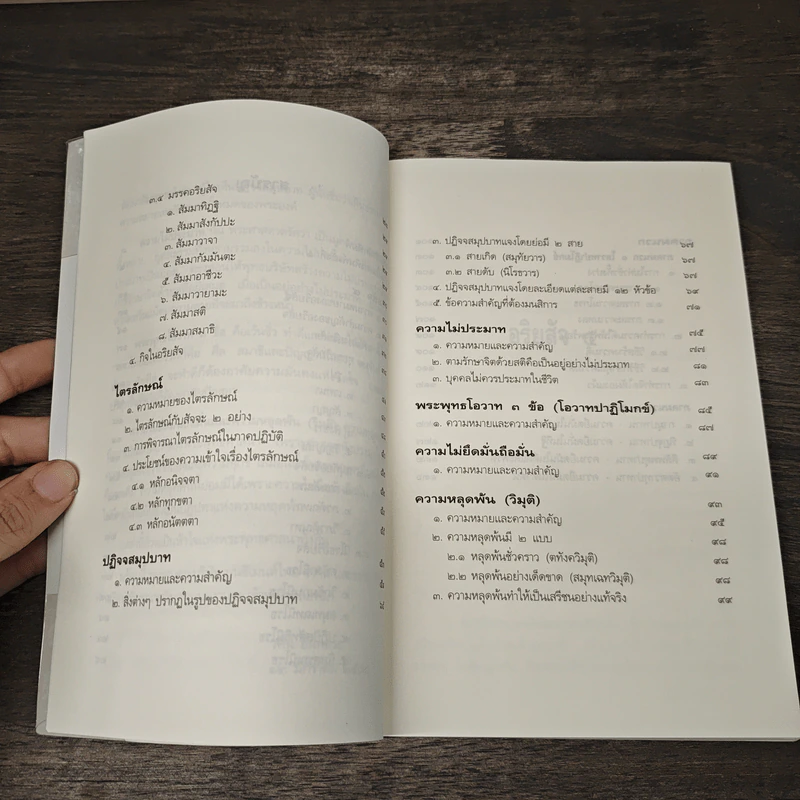 ๓.๔ มรรคอริยสัจ
๑. สัมมาทิฏฐิ
๒. สัมมาสังกัปปะ
๓. สัมมาวาจา
๔. สัมมากัมมันตะ
๕. สัมมาอาชีวะ
๖. สัมมาวายามะ
๗. สัมมาสติ
๘. สัมมาสมาธิ
๔. กิจในอริยสัจ
ไตรลักษณ์
๑. ความหมายของไตรลักษณ์
๒. ไตรลักษณ์กับสัจจะ ๒ อย่าง
๓ การพิจารณาไตรลักษณ์ในภาคปฏิบัติ
๔ ประโยชน์ของความเข้าใจเรื่องไตรลักษณ์
๔.๑ หลักอนิจจตา
๔.๒ หลักทุกขตา
๔.๓ หลักอนัตตตา
ปฏิจจสมุปบาท
๑. ความหมายและความสำคัญ
๒. สิ่งต่างๆ ปรากฏในรูปของปฏิจจสมุปบาท
๓. ปฏิจจสมุปบาทแจงโดยย่อมี ๒ สาย ๖๗
๓.๑ สายเกิด (สมุทัยวาร) ๖๗
๓.๒ สายดับ (นิโรธวาร) ๖๗
๔. ปฏิจจสมุปบาทแจงโดยละเอียดแต่ละสายมี ๑๒ หัวข้อ ๖๙
๕. ข้อความสำคัญที่ต้องมนสิการ ๗๑
ความไม่ประมาท ๗๕
๑. ความหมายและความสำคัญ ๗๗
๒. ตามรักษาจิตด้วยสติคือเป็นอยู่อย่างไม่ประมาท ๘๑
๓. บุคคลไม่ควรประมาทในชีวิต ๘๓
พระพุทธโอวาท ๓ ข้อ (โอวาทปาฏิโมกข์) ๘๕
๑. ความหมายและความสำคัญ ๘๗
ความไม่ยึดมั่นถือมั่น ๘๙
๑. ความหมายและความสำคัญ ๙๑
ความหลุดพ้น (วิมุติ) ๙๓
๑. ความหมายและความสำคัญ ๙๕
๒. ความหลุดพ้นมี ๒ แบบ ๙๘
๒.๑ หลุดพ้นชั่วคราว (ตทังควิมุติ) ๙๘
๒.๒ หลุดพ้นอย่างเด็ดขาด (สมุทเฉทวิมุติ) ๙๘
๓. ความหลุดพ้นทำให้เป็นเสรีชนอย่างแท้จริง ๙๙